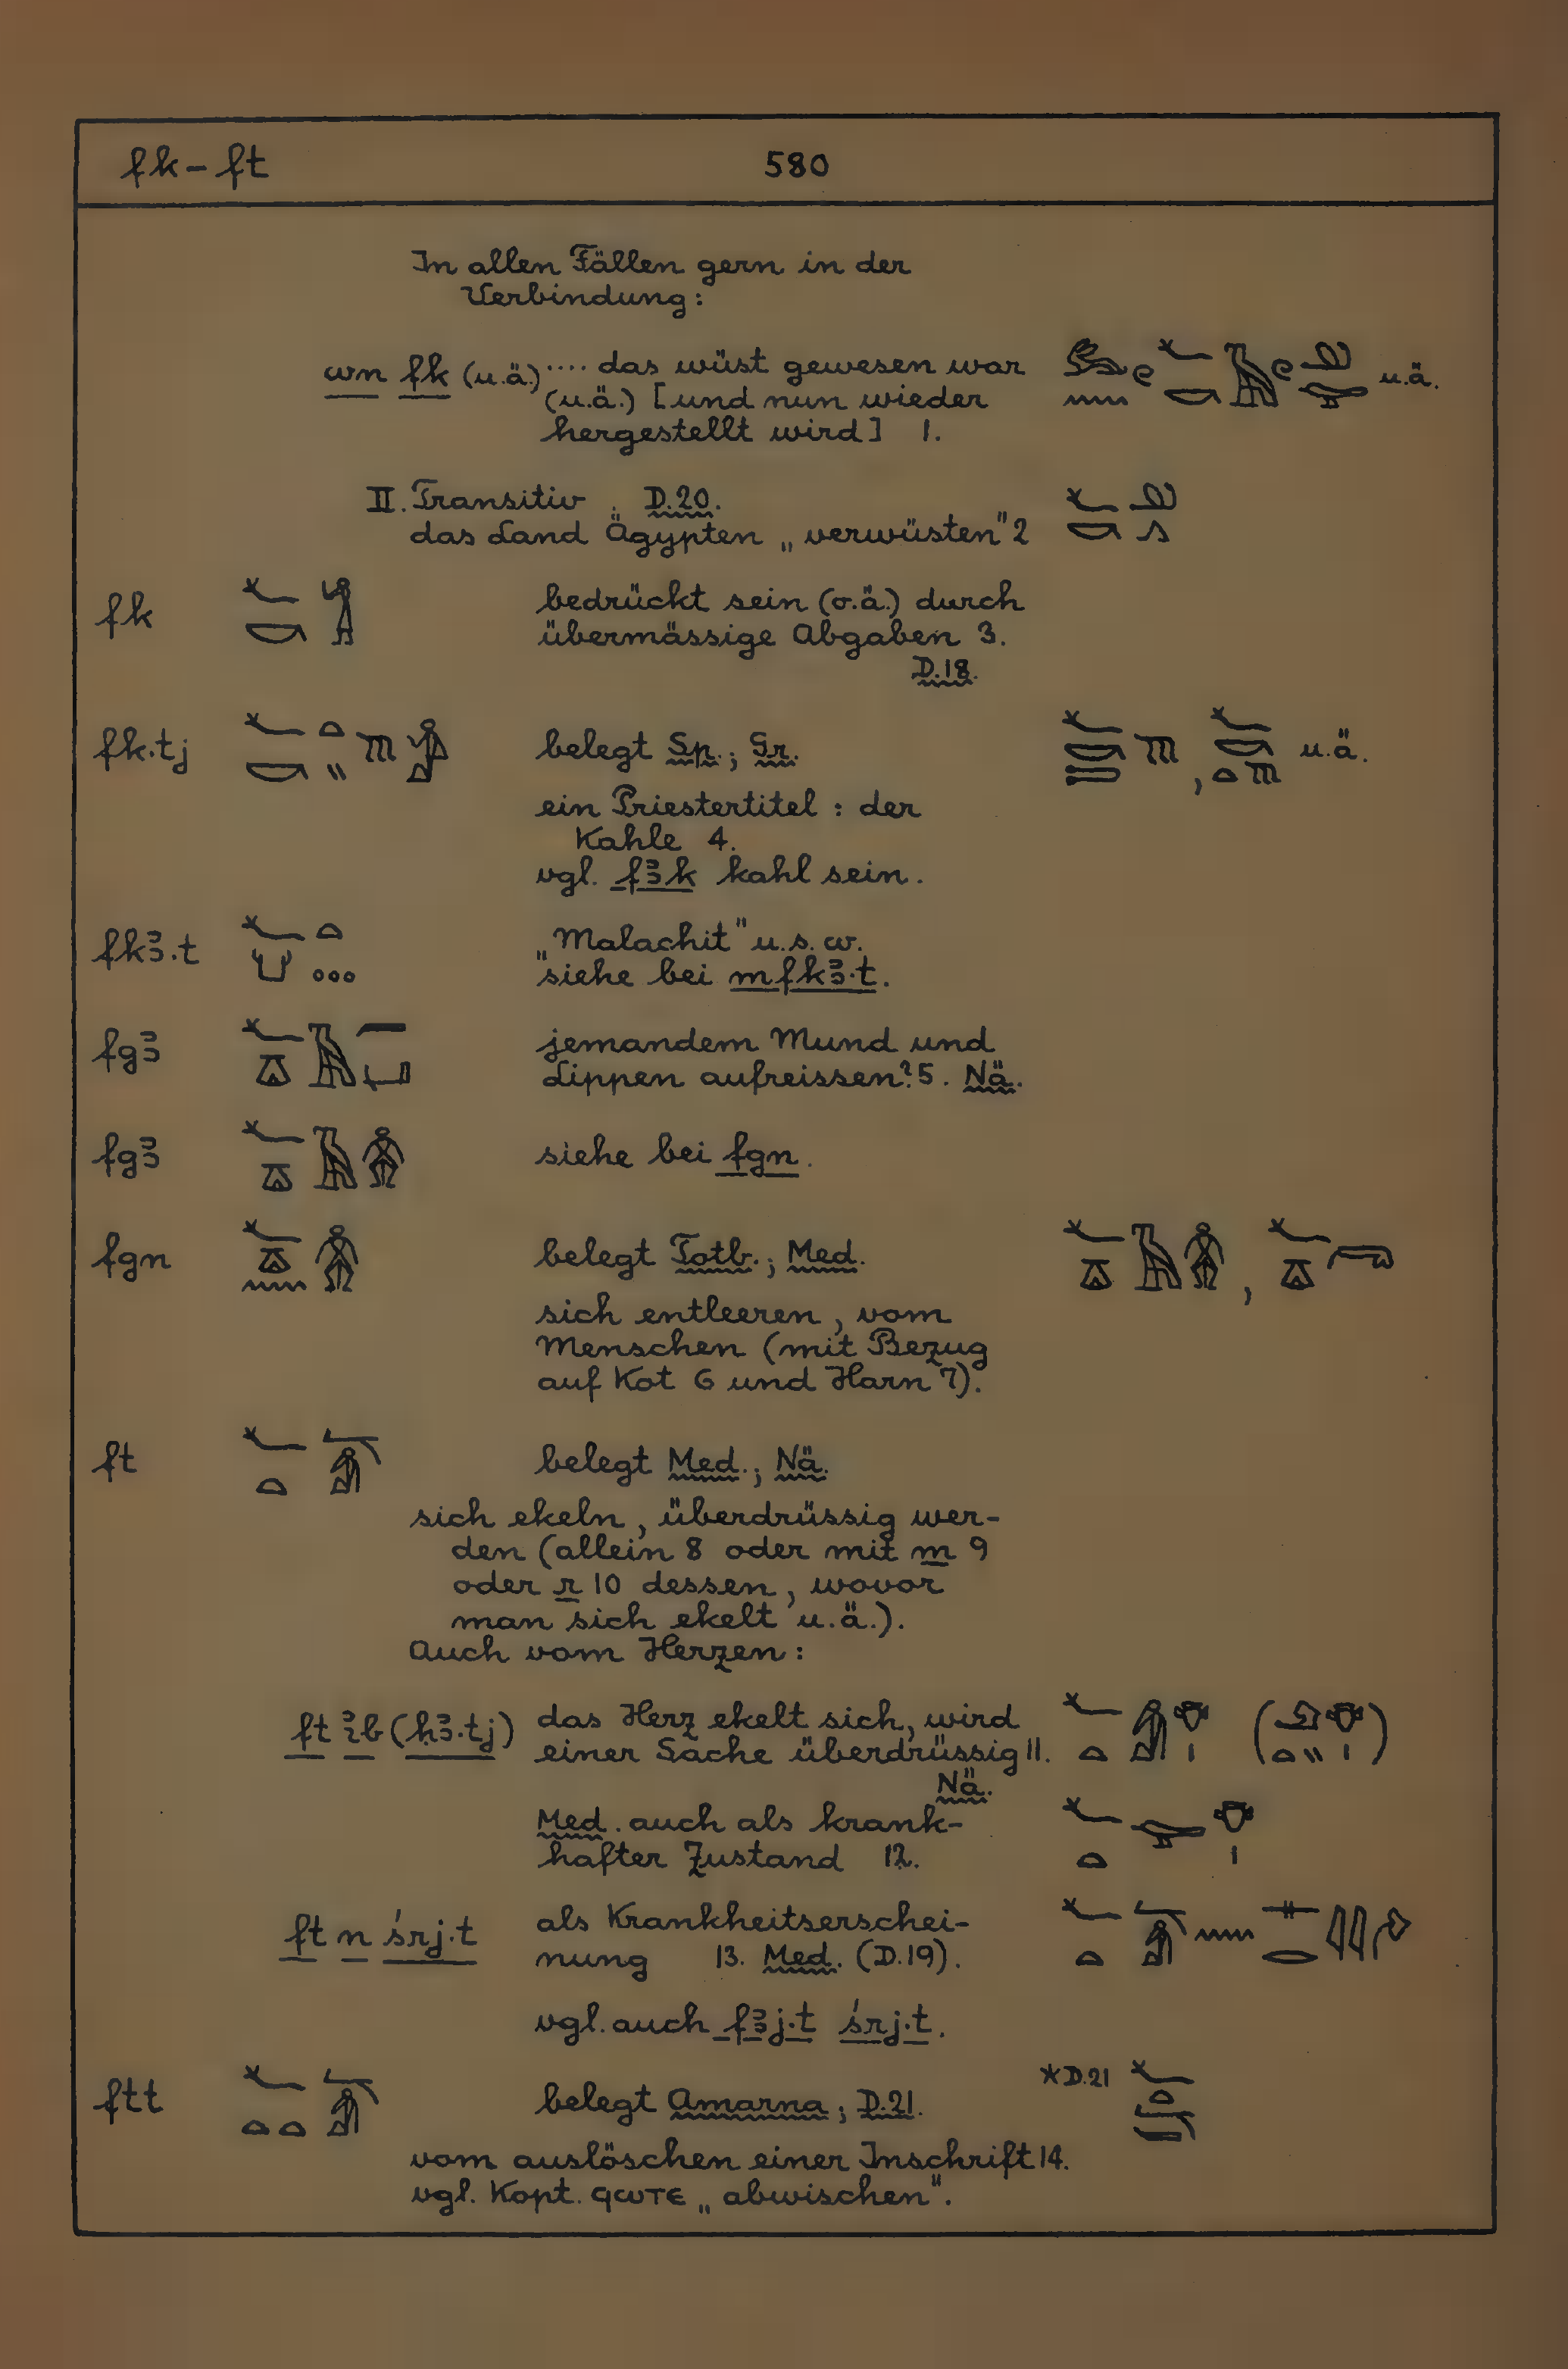 fk – ft 580
In allen Fällen gern in der
Verbindung:
wn fk (u.ä.) .... das wüst gewesen war u.ä.
(u.ä.) [und nun wieder
hergestellt wird] 1.
II. Transitiv. D.20.
das Land Ägypten „verwüsten" 2
fk bedrückt sein (o.ä.) durch
übermässige Abgaben 3.
D.18.
fk.tj belegt Sp.; Gr. , u.ä.
ein Priestertitel: der
Kahle 4.
vgl. fꜣk kahl sein.
fkꜣ.t „Malachit" u.s.w.
siehe bei mfkꜣ.t.
fgꜣ jemandem Mund und
Lippen aufreissen? 5. Nä.
fgꜣ siehe bei fgn.
fgn belegt Totb.; Med. ,
sich entleeren, vom
Menschen (mit Bezug
auf Kot 6 und Harn 7).
ft belegt Med.; Nä.
sich ekeln, überdrüssig wer-
den (allein 8 oder mit m 9
oder r 10 dessen, wovor
man sich ekelt u.ä.).
Auch vom Herzen:
ft ꜣib (ḥꜣ.tj) das Herz ekelt sich, wird ( )
einer Sache überdrüssig 11.
Nä.
Med. auch als krank-
hafter Zustand 12.
ft n śrj.t als Krankheitserschei-
nung 13. Med. (D.19).
vgl. auch fꜣj.t śrj.t.
ftt belegt Amarna; D.21. *D.21
vom auslöschen einer Inschrift 14.
vgl. Kopt. ϥⲱⲧⲉ „abwischen".